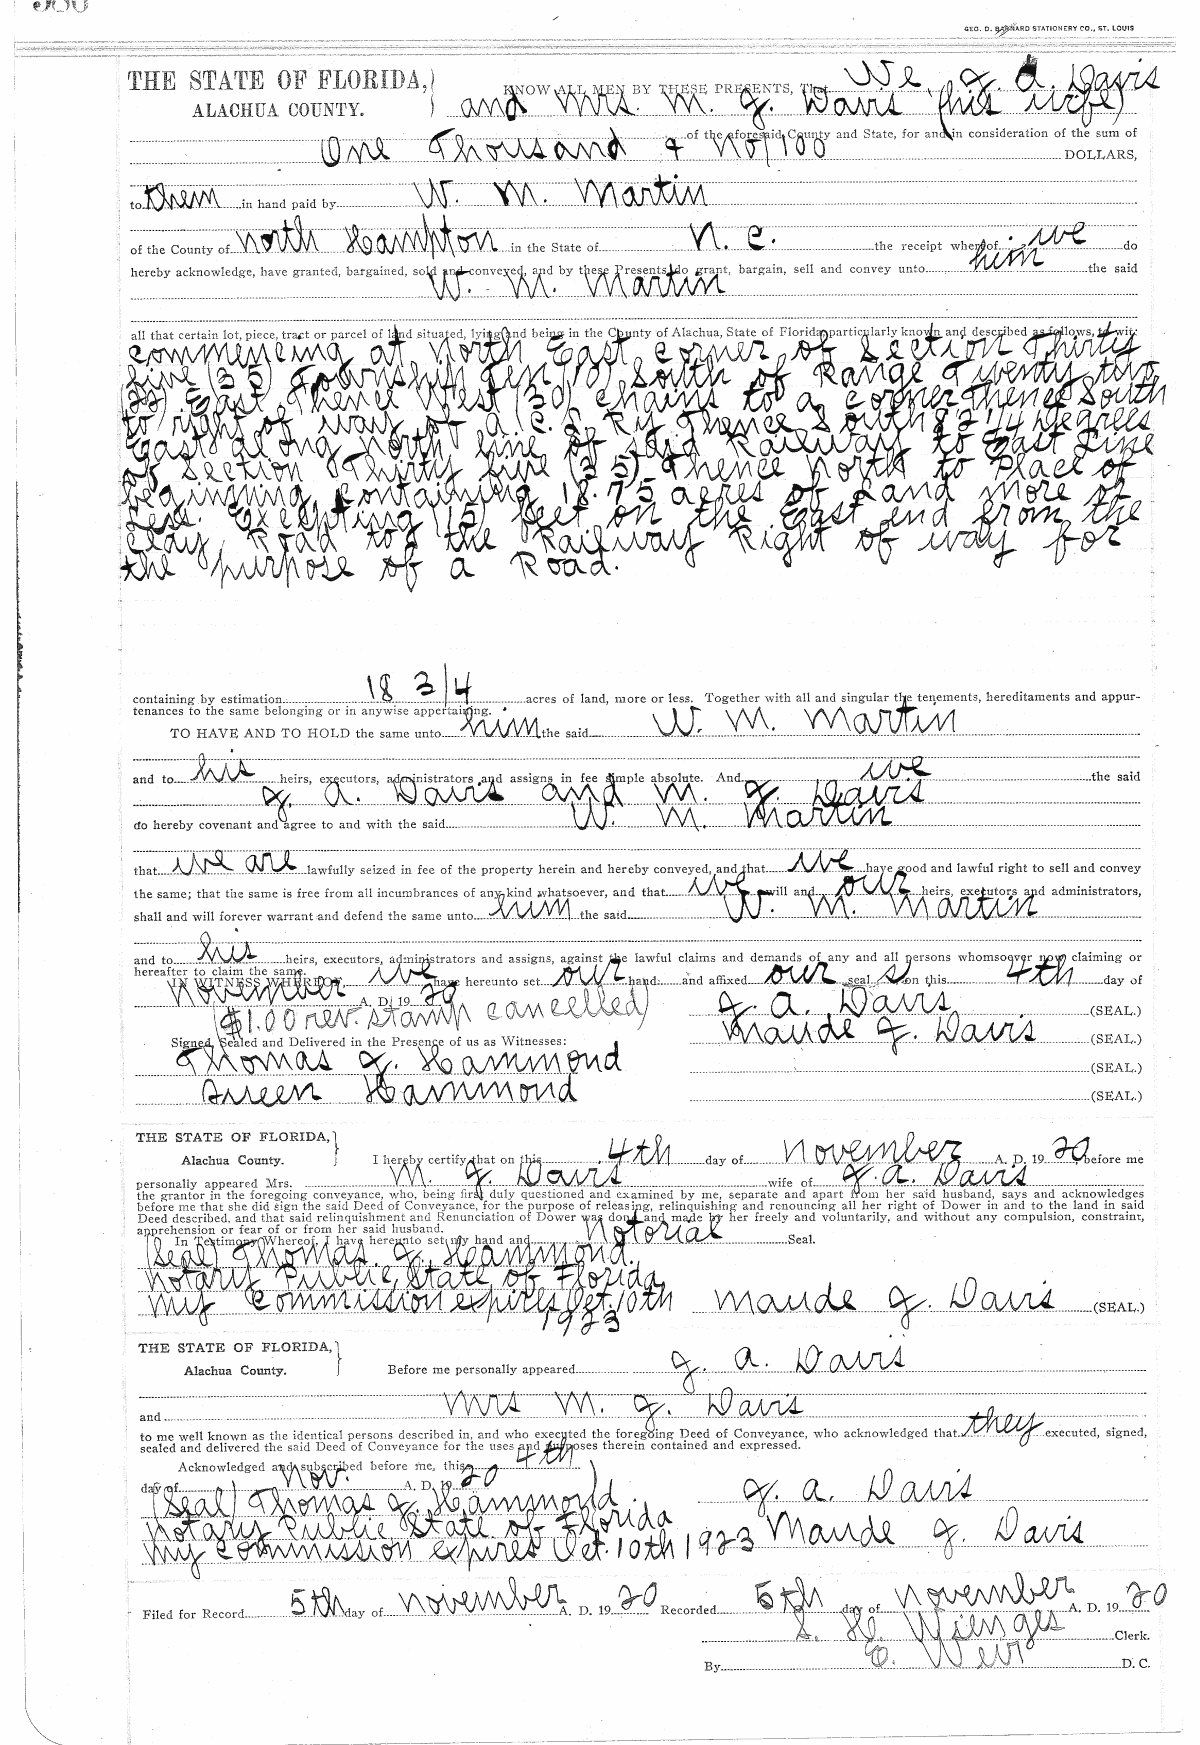 GEO. D. BARNARD STATIONERY CO., ST. LOUIS
THE STATE OF FLORIDA,
ALACHUA COUNTY.
KNOW ALL MEN BY THESE PRESENTS, That We, J. A. Davis
and Mrs. M. J. Davis (his wife)
of the aforesaid County and State, for and in consideration of the sum of
One Thousand & No/100 DOLLARS,
to them in hand paid by W. M. Martin
of the County of North Hampton in the State of N. C. the receipt whereof we do
hereby acknowledge, have granted, bargained, sold and conveyed, and by these Presents do grant, bargain, sell and convey unto him the said
W. M. Martin
all that certain lot, piece, tract or parcel of land situated, lying and being in the County of Alachua, State of Florida, particularly known and described as follows, to wit:
Commencing at North East corner of Section Thirty
five (35) Township Ten (10) South of Range Twenty two
(22) East Thence West (30) chains to a corner Thence South
to right of way of A. C. L. Ry Thence South 82 1/4 degrees
East along North line of said Railway to East Line
of Section Thirty five (35) Thence North to Place of
beginning containing 18.75 acres of Land more or
less. Excepting (15) feet on the East end from the
clay Road to the Railway Right of way for
the purpose of a Road.
containing by estimation 18 3/4 acres of land, more or less. Together with all and singular the tenements, hereditaments and appur-
tenances to the same belonging or in anywise appertaining.
TO HAVE AND TO HOLD the same unto him the said W. M. Martin
and to his heirs, executors, administrators and assigns in fee simple absolute. And we the said
J. A. Davis and M. J. Davis
do hereby covenant and agree to and with the said W. M. Martin
that we are lawfully seized in fee of the property herein and hereby conveyed, and that we have good and lawful right to sell and convey
the same; that the same is free from all incumbrances of any kind whatsoever, and that we will and our heirs, executors and administrators,
shall and will forever warrant and defend the same unto him the said W. M. Martin
and to his heirs, executors, administrators and assigns, against the lawful claims and demands of any and all persons whomsoever now claiming or
hereafter to claim the same.
IN WITNESS WHEREOF, we have hereunto set our hand and affixed our seal s on this 4th day of
November A. D. 19 20
($1.00 rev. stamp cancelled)
J. A. Davis (SEAL.)
Maude J. Davis (SEAL.)
Signed, Sealed and Delivered in the Presence of us as Witnesses:
Thomas J. Hammond (SEAL.)
Queen Hammond (SEAL.)
THE STATE OF FLORIDA,
Alachua County.
I hereby certify that on this 4th day of November A. D. 19 20 before me
personally appeared Mrs. M. J. Davis wife of J. A. Davis
the grantor in the foregoing conveyance, who, being first duly questioned and examined by me, separate and apart from her said husband, says and acknowledges
before me that she did sign the said Deed of Conveyance, for the purpose of releasing, relinquishing and renouncing all her right of Dower in and to the land in said
Deed described, and that said relinquishment and Renunciation of Dower was done and made by her freely and voluntarily, and without any compulsion, constraint,
apprehension or fear of or from her said husband.
In Testimony Whereof, I have hereunto set my hand and Notorial Seal.
(Seal) Thomas. J. Hammond.
Notary Public, State of Florida
My Commission expires Oct. 10th
1923
Maude J. Davis (SEAL.)
THE STATE OF FLORIDA,
Alachua County.
Before me personally appeared J. A. Davis
and Mrs M. J. Davis
to me well known as the identical persons described in, and who executed the foregoing Deed of Conveyance, who acknowledged that they executed, signed,
sealed and delivered the said Deed of Conveyance for the uses and purposes therein contained and expressed.
Acknowledged and subscribed before me, this 4th
day of Nov. A. D. 19 20
(Seal) Thomas J. Hammond. J. A. Davis
Notary Public State of Florida
My Commission expires Oct. 10th 1923 Maude J. Davis
Filed for Record 5th day of November A. D. 19 20 Recorded 5th day of November A. D. 19 20
S. H. Wienges Clerk.
By E. Weir D. C.